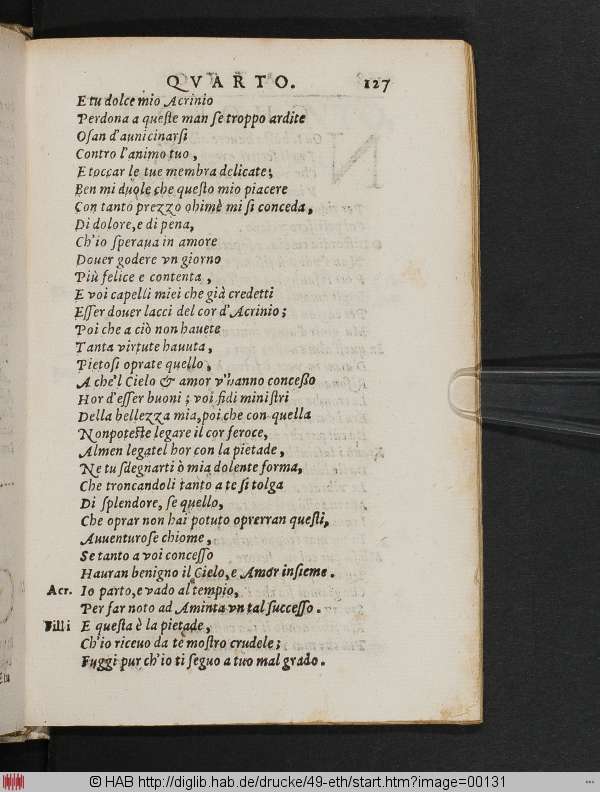 QVARTO. 127
E tu dolce mio Acrinio
Perdona a queste man se troppo ardite
Osan d'auuicinarsi
Contro l'animo tuo,
E toccar le tue membra delicate;
Ben mi duole che questo mio piacere
Con tanto prezzo ohimè mi si conceda,
Di dolore, e di pena,
Ch'io speraua in amore
Douer godere vn giorno
Più felice e contenta,
E voi capelli miei che già credetti
Esser douer lacci del cor d'Acrinio;
Poi che a ciò non hauete
Tanta virtute hauuta,
Pietosi oprate quello,
A che'l Cielo & amor v'hanno concesso
Hor d'esser buoni; voi fidi ministri
Della bellezza mia, poi che con quella
Nonpoteste legare il cor feroce,
Almen legatel hor con la pietade,
Ne tu sdegnarti ò mia dolente forma,
Che troncandoli tanto a te si tolga
Di splendore, se quello,
Che oprar non hai potuto oprerran questi,
Auuenturose chiome,
Se tanto a voi concesso
Hauran benigno il Cielo, e Amor insieme.
Acr. Io parto, e vado al tempio,
Per far noto ad Aminta vn tal successo.
Filli E questa è la pietade,
Ch'io riceuo da te mostro crudele;
Fuggi pur ch'io ti seguo a tuo mal grado.
© HAB http://diglib.hab.de/drucke/49-eth/start.htm?image=00131